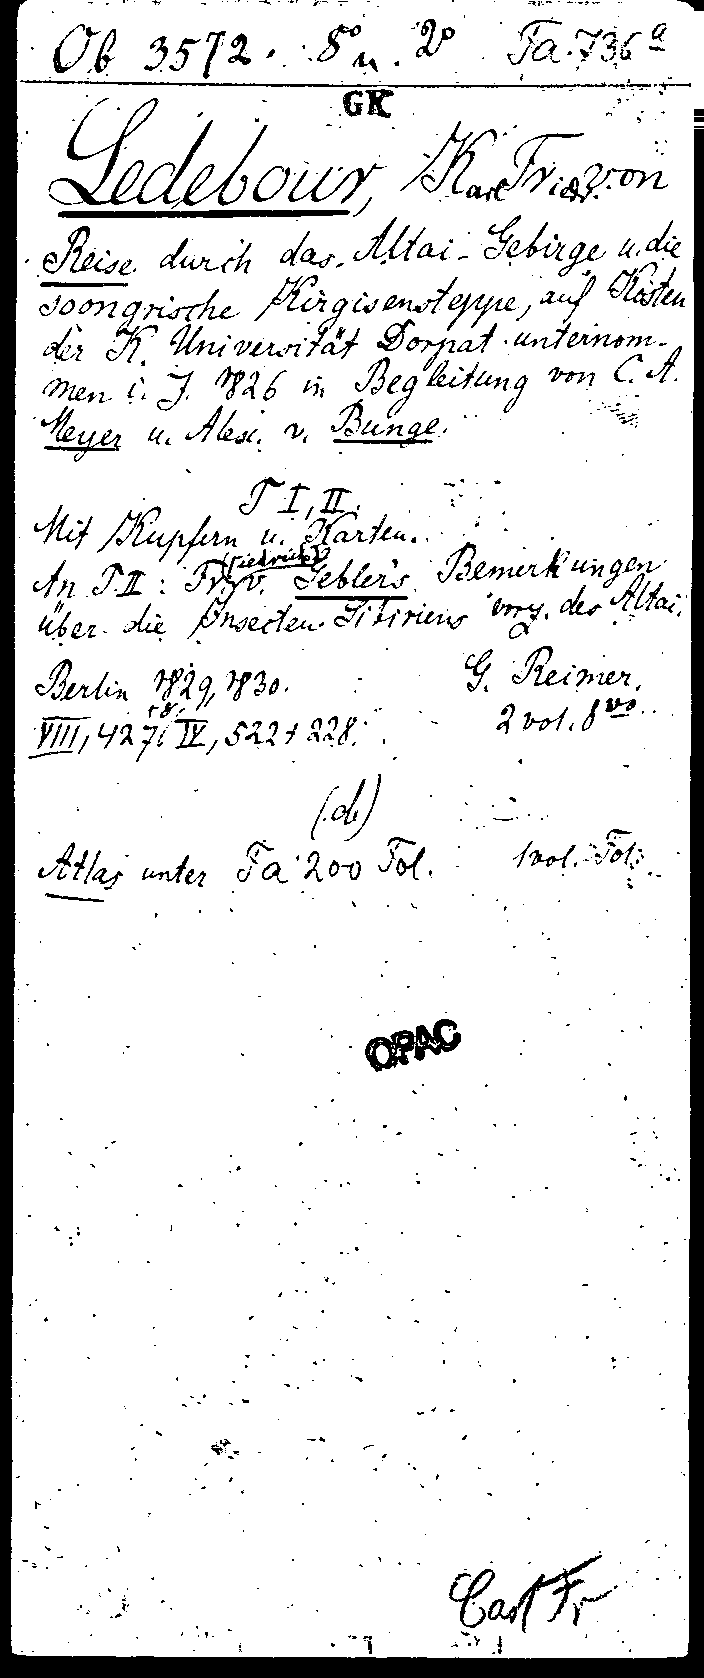 Ob 3572. 8° u. 2° Fa.736a
GK
Ledebour, Karl Friedr. von
Reise durch das Altai-Gebirge u. die
soongrische Kirgisensteppe, auf Kosten
der K. Universität Dorpat unternom-
men i. J. 1826 in Begleitung von C. A.
Meyer u. Alex. v. Bunge.
T I, II.
Mit Kupfern u. Karten.
An T. II: Fr. v. Gebler's Bemerkungen
(Friedrich)
über die Insecten Sibiriens vorz. des Altai.
Berlin 1829, 1830. G. Reimer.
VIII, 427; IV, 522 + 228. 2 vol. 8vo
(db)
Atlas unter Fa 200 Fol. 1 vol. Fol.
OPAC
Carl Fr